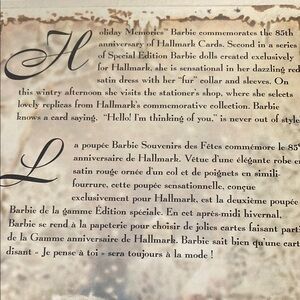 Holiday Memories™ Barbie commemorates the 85th
anniversary of Hallmark Cards. Second in a series
of Special Edition Barbie dolls created exclusively
for Hallmark, she is sensational in her dazzling red
satin dress with her "fur" collar and sleeves. On
this wintry afternoon she visits the stationer's shop, where she selects
lovely replicas from Hallmark's commemorative collection. Barbie
knows a card saying, "Hello! I'm thinking of you," is never out of style
La poupée Barbie Souvenirs des Fêtes commémore le 85
anniversaire de Hallmark. Vêtue d'une élégante robe en
satin rouge ornée d'un col et de poignets en simili-
fourrure, cette poupée sensationnelle, conçue
exclusivement pour Hallmark, est la deuxième poupée
Barbie de la gamme Édition spéciale. En cet après-midi hivernal,
Barbie se rend à la papeterie pour choisir de jolies cartes faisant parti
de la Gamme anniversaire de Hallmark. Barbie sait bien qu'une cart
disant « Je pense à toi » sera toujours à la mode !